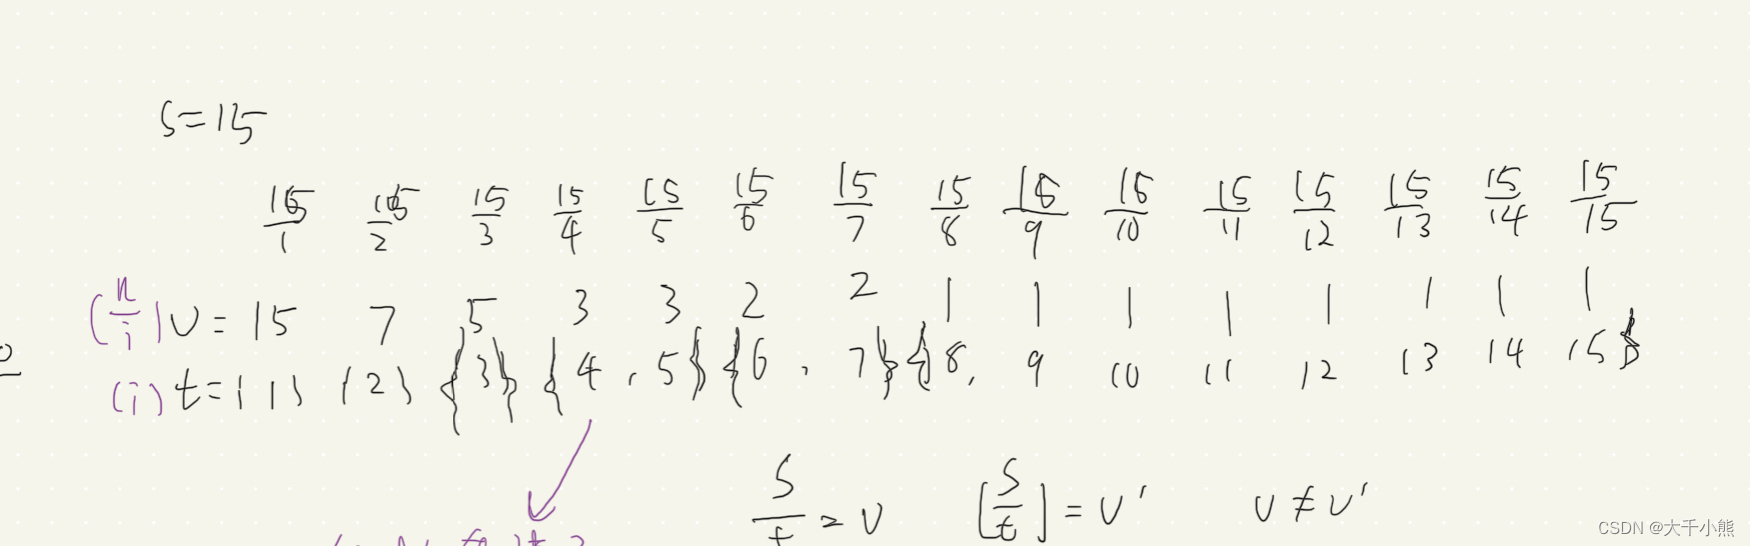 S=15
15/1 15/2 15/3 15/4 15/5 15/6 15/7 15/8 15/9 15/10 15/11 15/12 15/13 15/14 15/15
(n/i) v = 15 7 5 3 3 2 2 1 1 1 1 1 1 1 1
(i) t = {1} {2} {3} {4 , 5} {6 , 7} {8, 9 10 11 12 13 14 15}
S/t = v [S/t] = v' v ≠ v'
CSDN @大千小熊